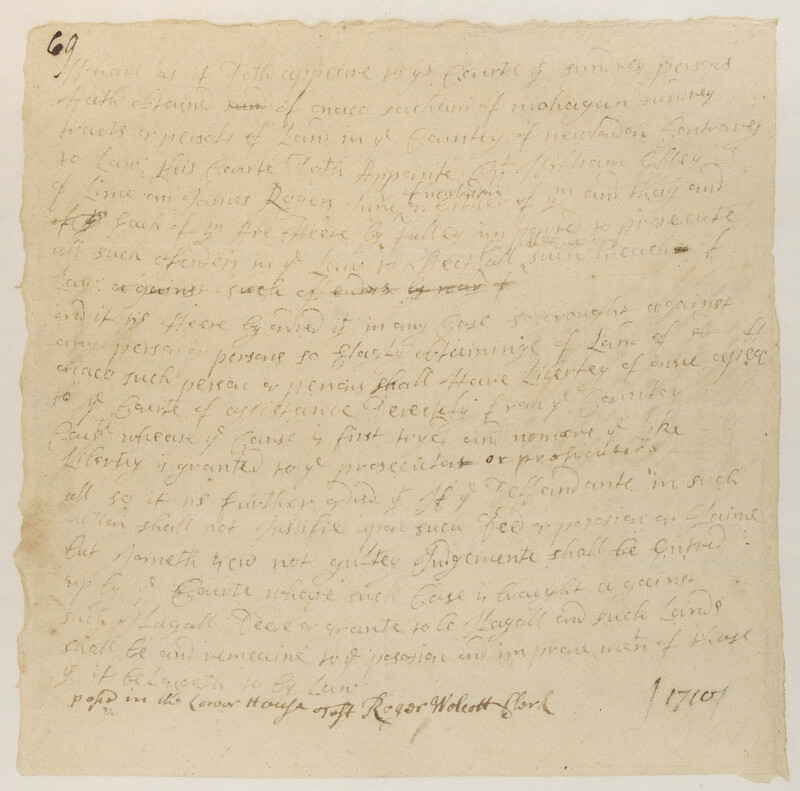 69
Whare as it Doth appeare to ye Courte yt sundrey persons
Hath obtained of onaco sachem of mohagan sundrey
tracts or persels of Land in ye Countey of newlondon Contrarey
to Law this Courte Doth Appointe Cpt William Elley
of Lime and James Rogers Junr of newlondon or Either of ym and they and
Each of ym Are Heere by fulley impowred to prosecute
all such ofenders in ye Law to afect all such breach of
Law against such of
and it is Heere by ordred yt in any Case so brought against
any person or persons so Elagaly obtaininge of Land of
onaco such person or persons shall Have Libertey of one apeal
to ye Courte of assistance Derectly from ye Countey
Court wheare ye Cause is first tryed and nomore ye like
Libertey is granted to ye prosecutor or prosecuters
all so it is further ordred yt If ye Deffandante in such
action shall not Justifie upon such Deed or posesion or Claime
but not guiltey Judgemente shall be Entred
up by ye Courte whare such Case is brought a gainst
such Ilagall Deede or grante to be Ilagall and such Lands
shall be and remeaine to ye posesion and improuement of those
yt it be Longeth to by Law
past in the Lower House Test Roger Wolcott Clerk
1710
86